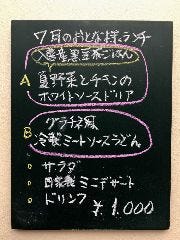 7月のおとな様ランチ
八鹿産黒豆茶ごはん
A 夏野菜とチキンの
ホワイトソースドリア
グラチネ風
B 冷製ミートソースうどん
○ サラダ
○ 自家製ミニデザート
○ ドリンク ¥1,000